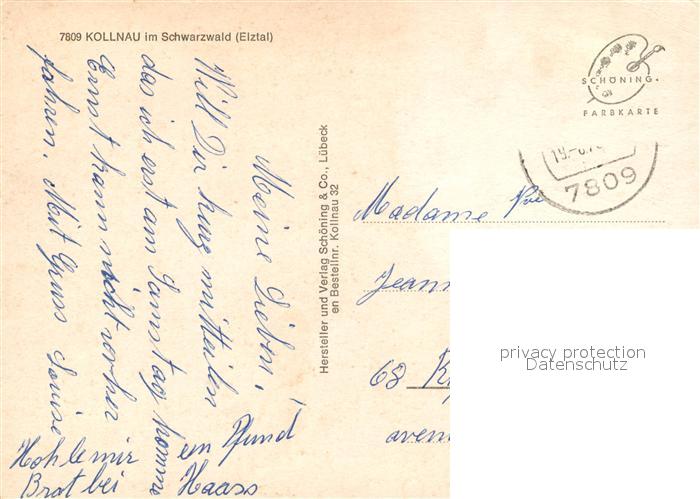 7809 KOLLNAU im Schwarzwald (Elztal)
Meine Lieben!
Will Dir kurz mitteilen
das ich erst am Samstag komme
Ernst kann nicht vorher
fahren. Mit Gruss Louise
Hohle mir ein Pfund
Brot bei Haass
Hersteller und Verlag Schöning & Co., Lübeck
en Bestellnr. Kollnau 32
SCHÖNING
FARBKARTE
7809
Madame
Jeann
68
aven
privacy protection
Datenschutz